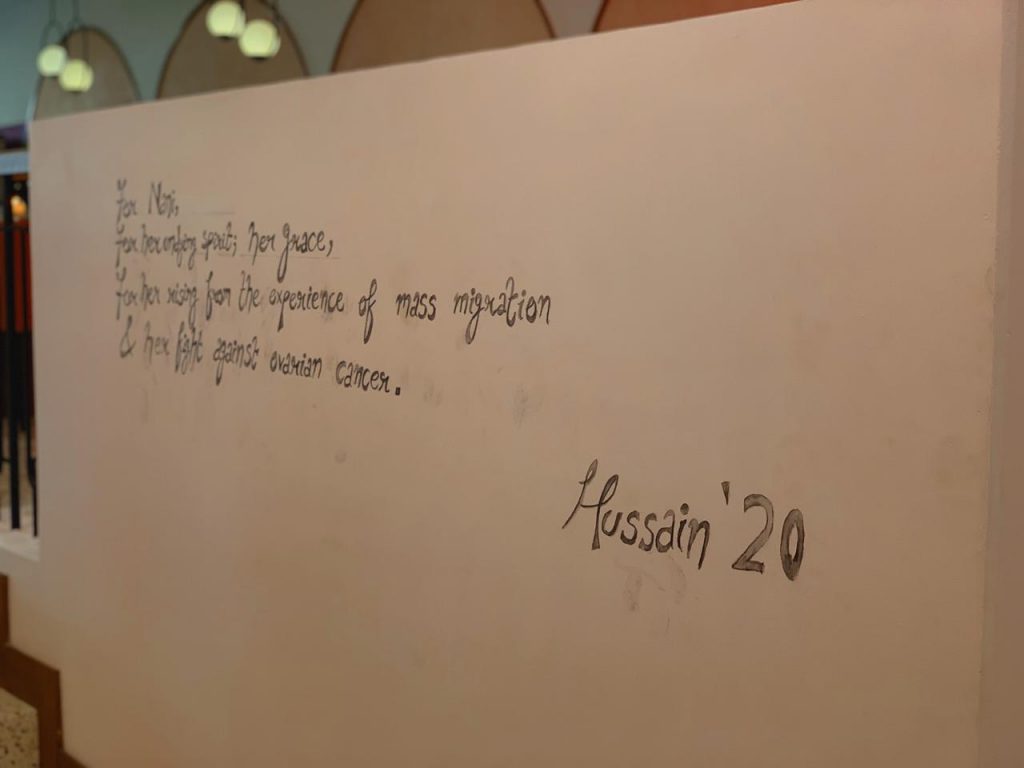 For Nani,
for her undying spirit; her grace,
for her rising from the experience of mass migration
& her fight against ovarian cancer.
Hussain '20